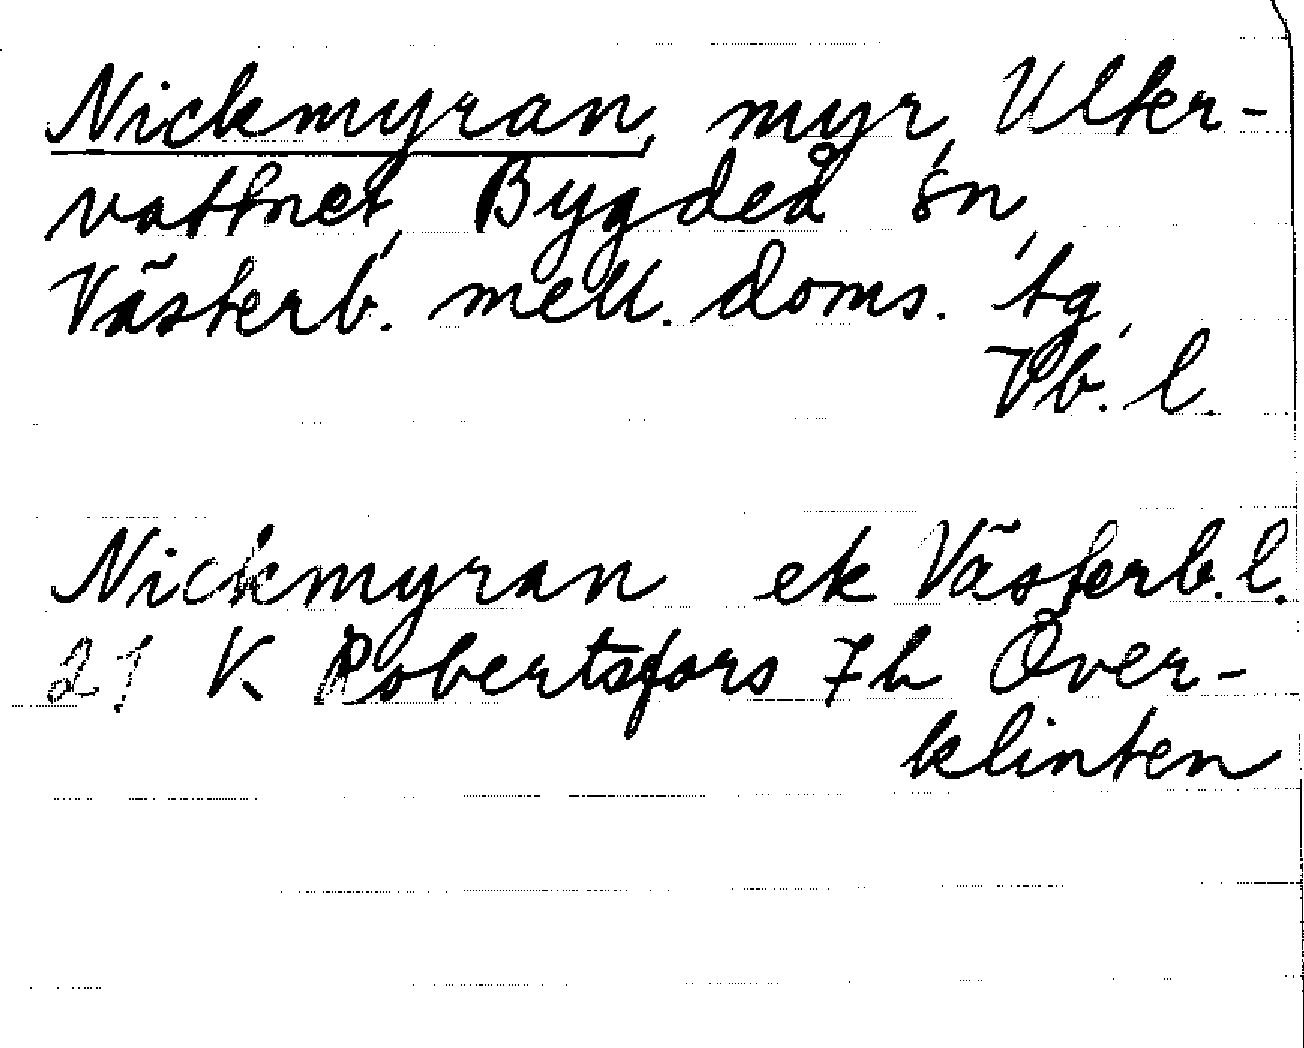 Nickmyran, myr, Ulter-
vattnet, Bygdeå sn,
Västerb. mell. doms. tg,
Vb. l.
Nickmyran ek Västerb. l.
21 V. Robertsfors 7h Över-
klinten